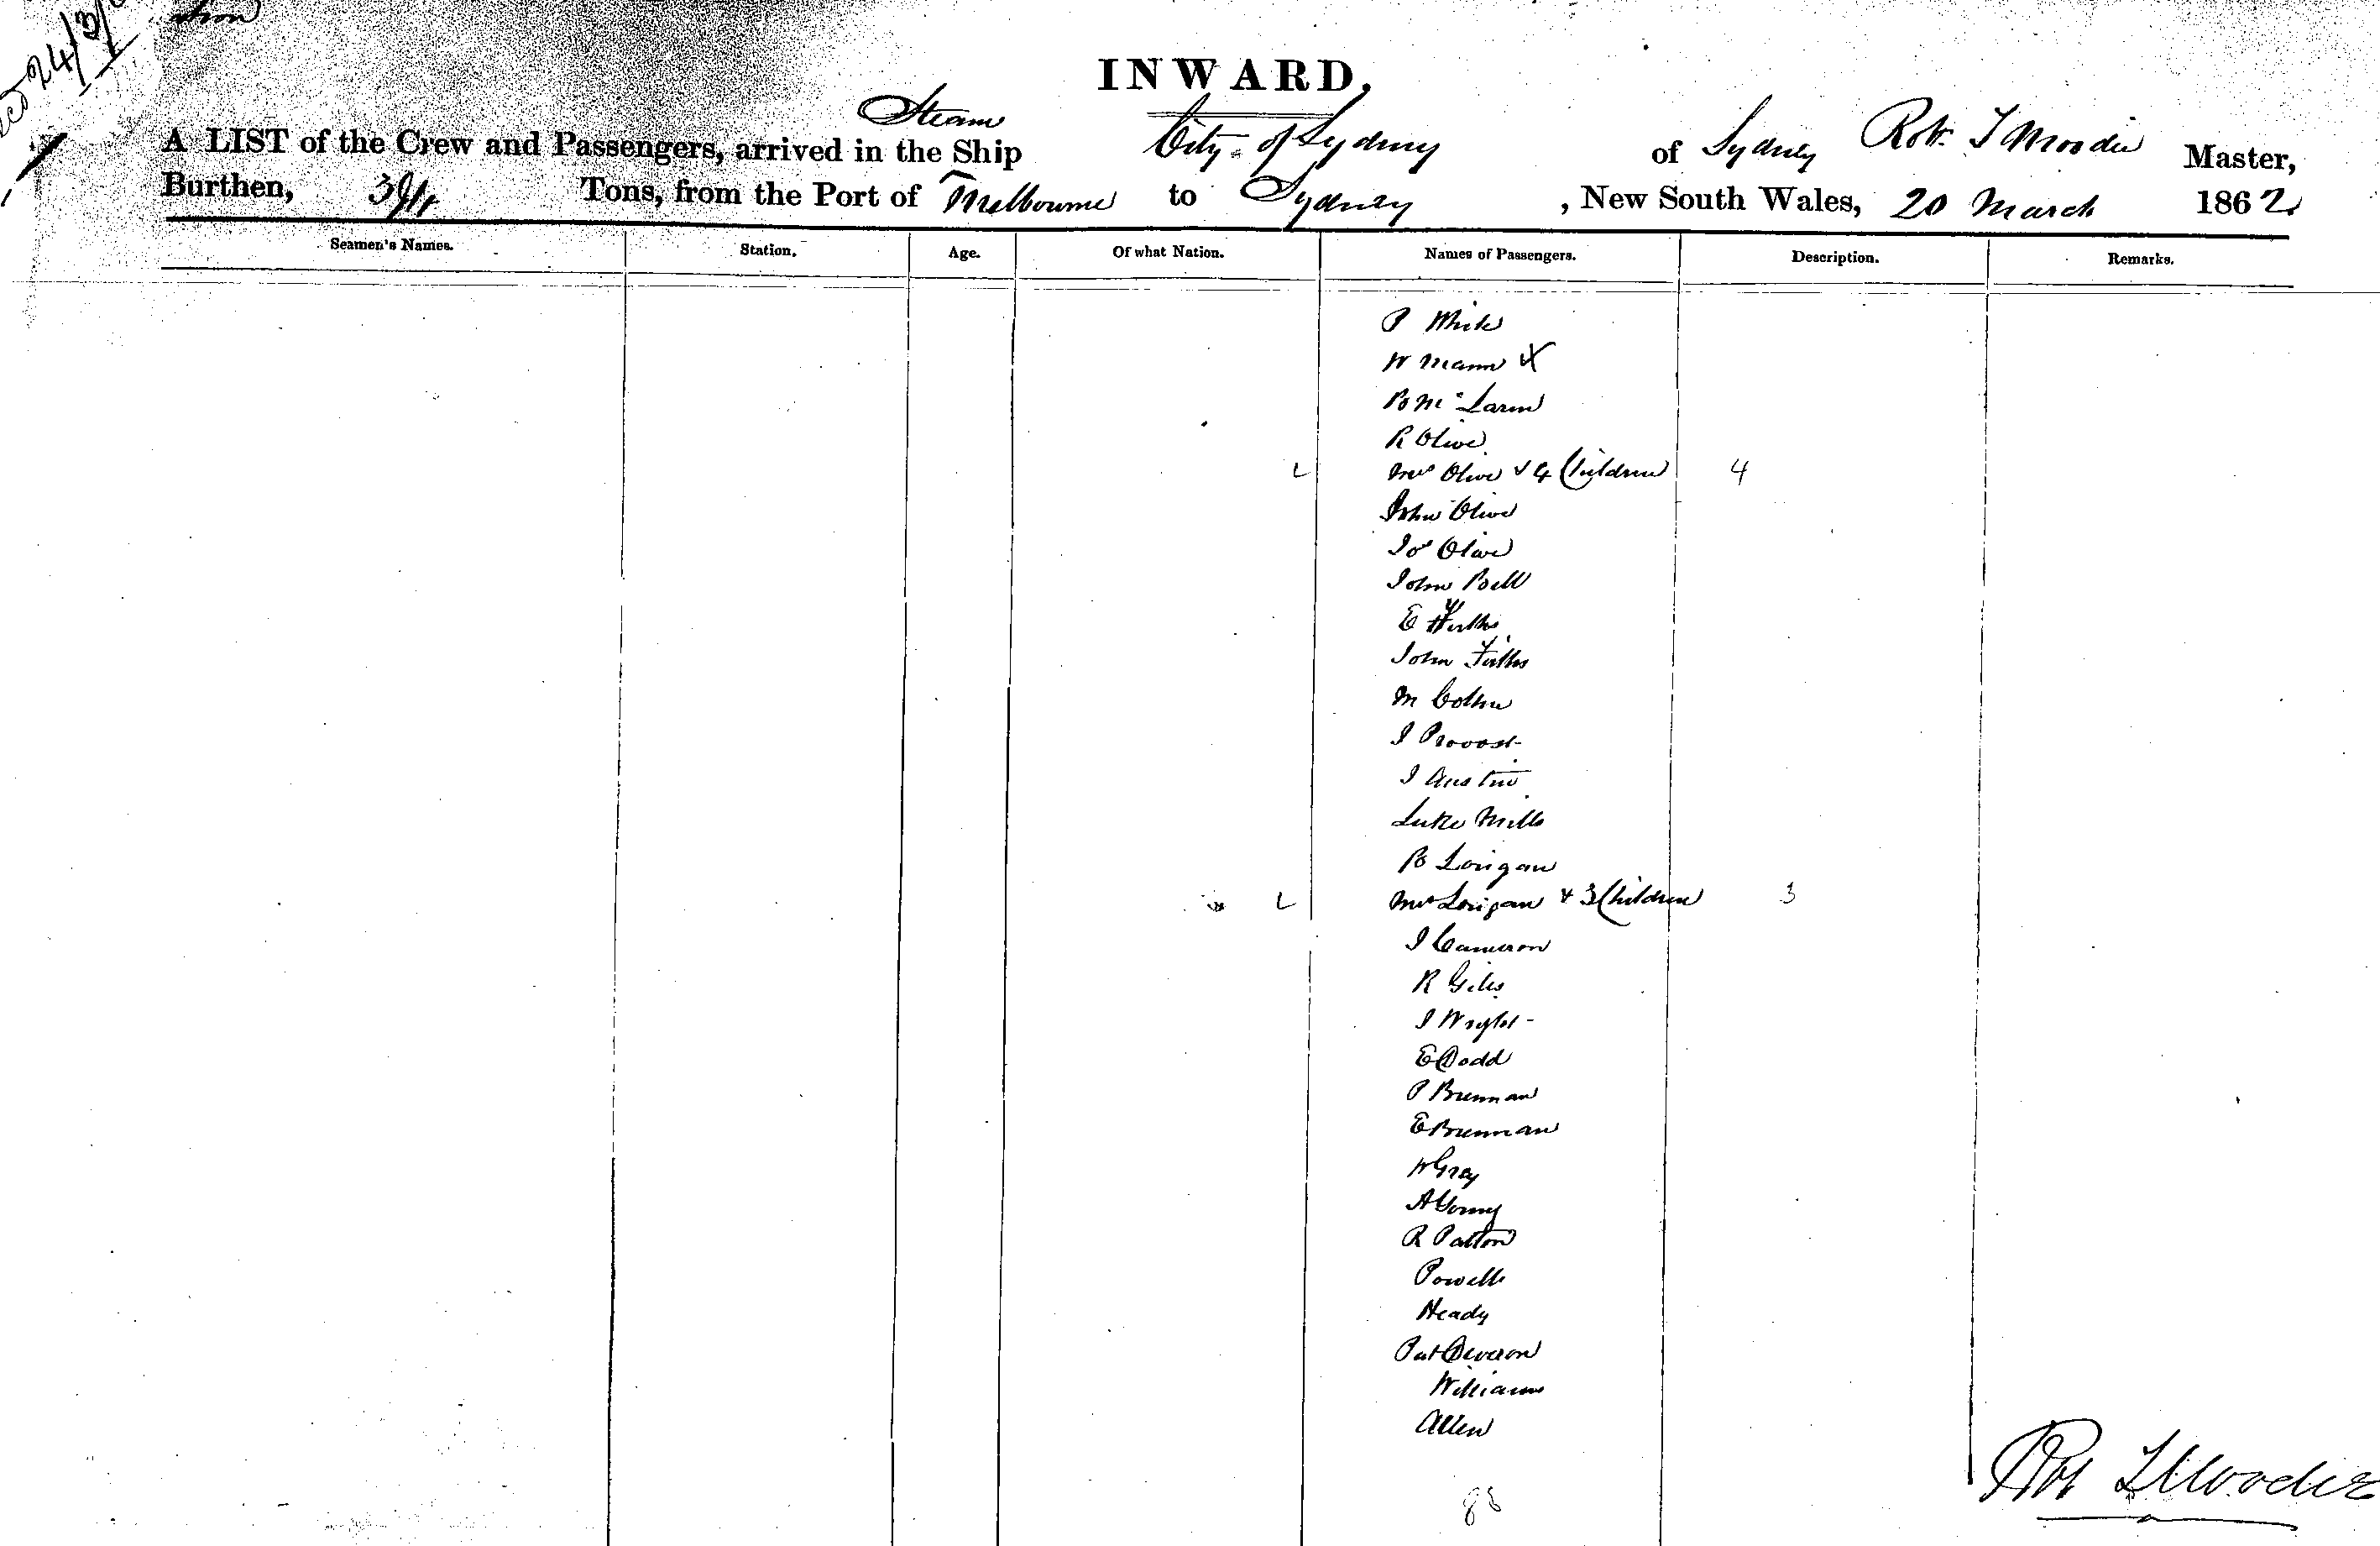 24/3/
INWARD.
Steam
A LIST of the Crew and Passengers, arrived in the Ship City of Sydney of Sydney Robt. T Moodie Master,
Burthen, Tons, from the Port of Melbourne to Sydney , New South Wales, 20 March 1862
Seamen's Names. Station. Age. Of what Nation. Names of Passengers. Description. Remarks.
P White
W Mann
B Mc Laren
R Olive
Mrs Olive & 4 Children 4
John Olive
Jos Olive
John Bell
E Firths
John Firths
M Cohen
J Provost
J Austin
Luke Mills
B Lorigan
Mrs Lorigan & 3 Children 3
J Cameron
R Giles
J Wright
E Dodd
P Brennan
E Brennan
W Gray
A Young
R Patton
Powell
Heady
Pat
Williams
Allen
Robt T Moodie